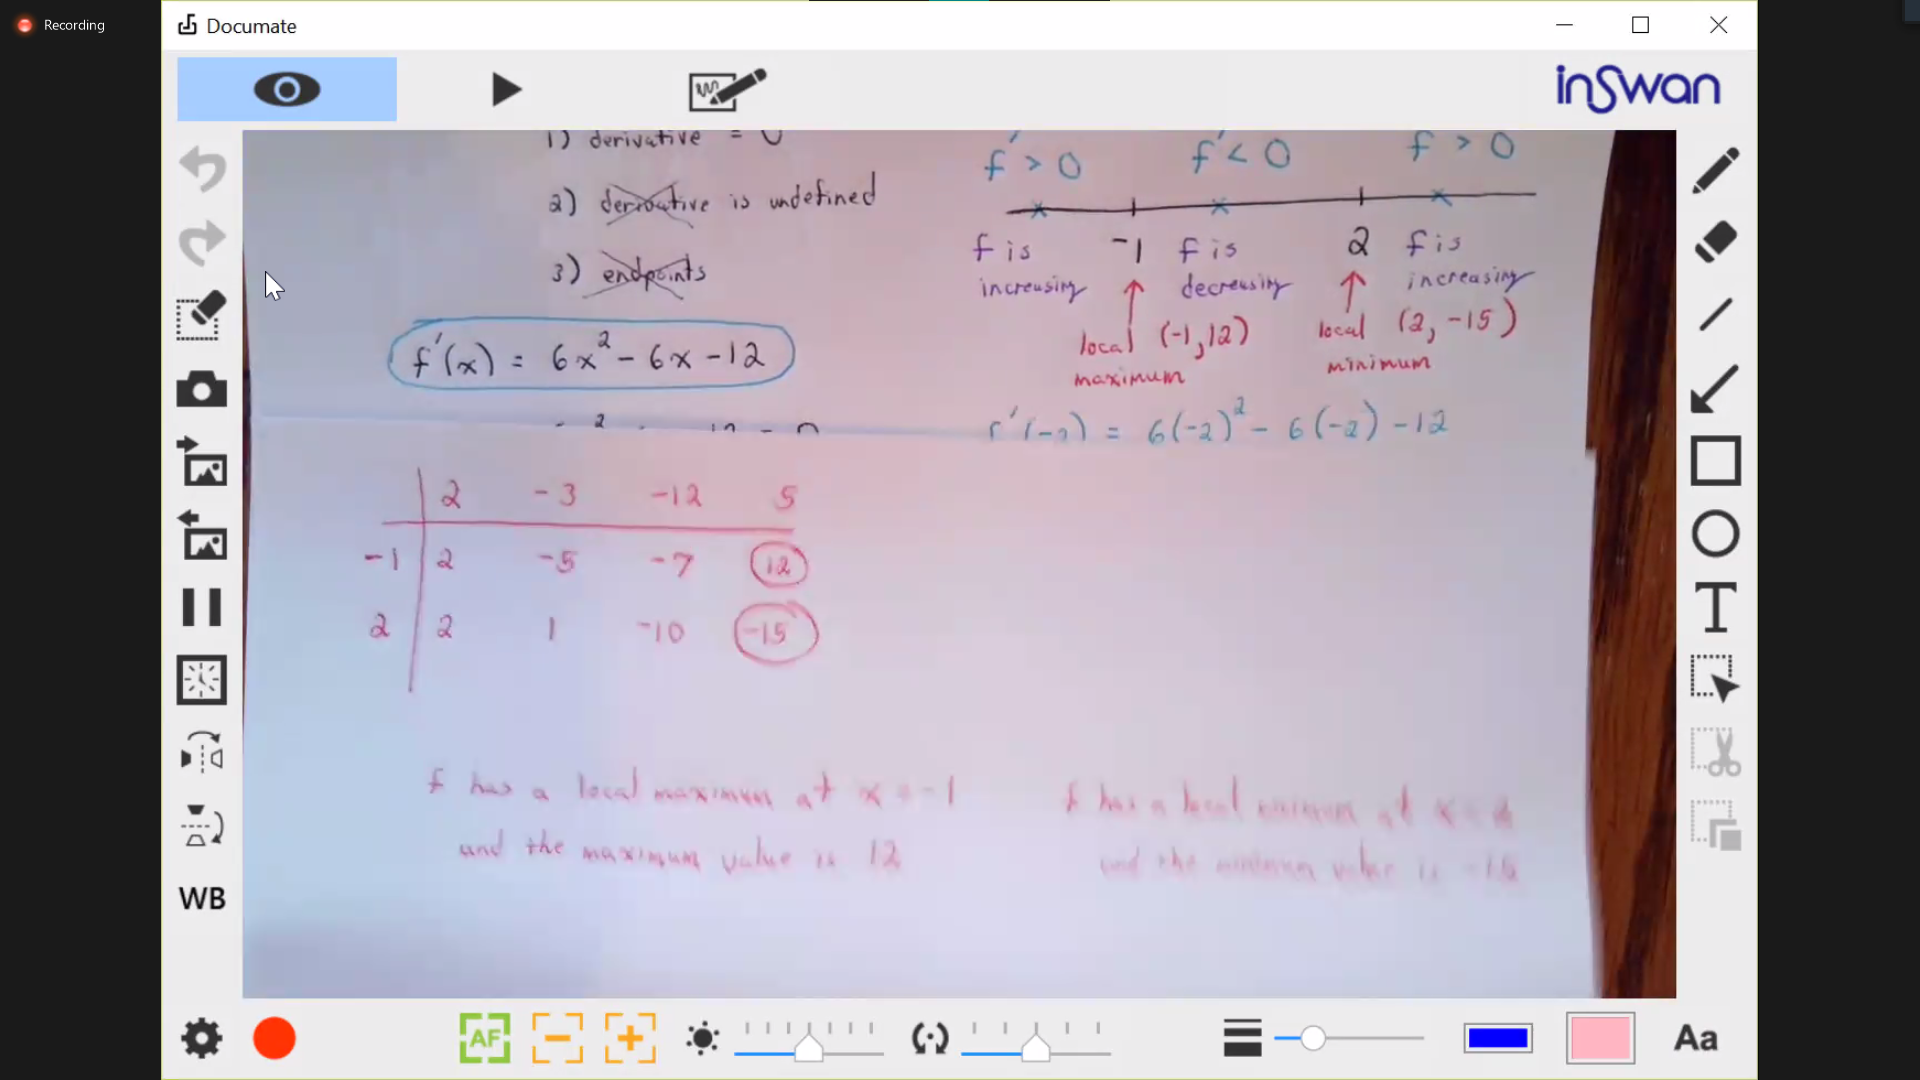 Recording
Documate
inSwan
1) derivative = 0
2) derivative is undefined
3) endpoints
f'(x) = 6x² - 6x - 12
f' > 0 f' < 0 f > 0
-1 2
f is increasing
f is decreasing
f is increasing
local maximum (-1, 12)
local minimum (2, -15)
f'(-2) = 6(-2)² - 6(-2) - 12
2 -3 -12 5
-1 2 -5 -7 12
2 2 1 -10 -15
f has a local maximum at x = -1
and the maximum value is 12
f has a local minimum at x = 2
and the minimum value is -15
WB
AF
T
Aa